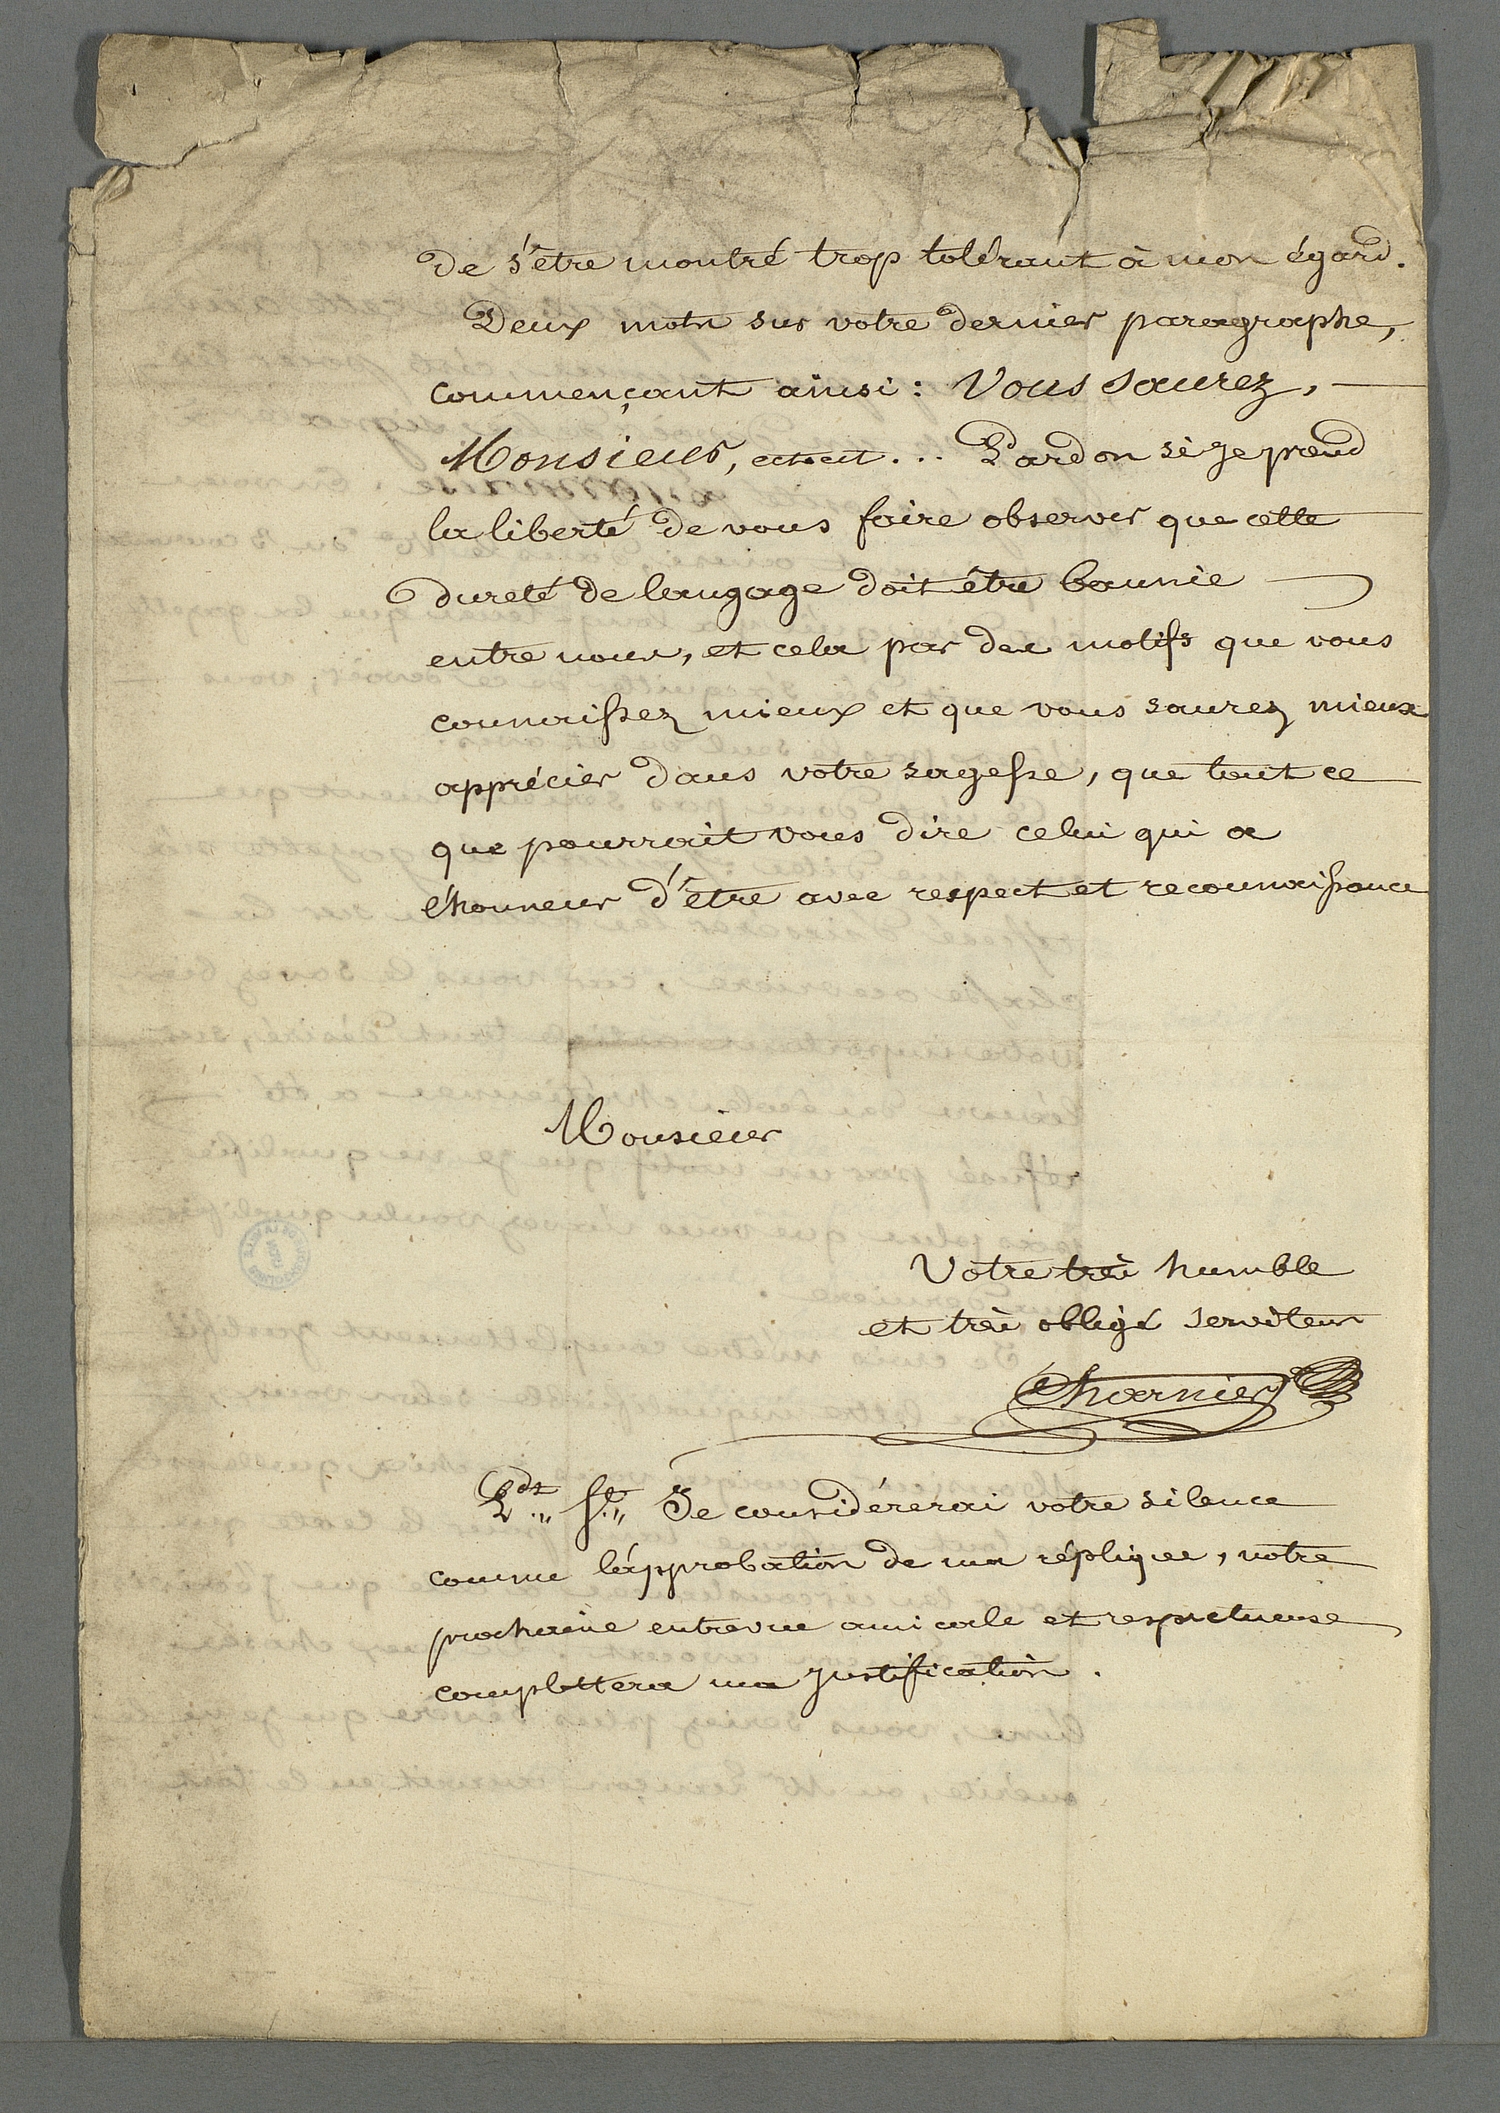 de s'être montré trop tolérant à mon égard.
Deux mots sur votre dernier paragraphe,
commençant ainsi : Vous saurez,
Monsieur, etc ... Pardon si je prend
la liberté de vous faire observer que cette
dureté de langage doit être bannie
entre nous, et cela par des motifs que vous
connaissez mieux et que vous saurez mieux
apprécier dans votre sagesse, que tout ce
que pourrait vous dire celui qui a
l'honneur d'être avec respect et reconnaissance
Monsieur
Votre très humble
et très obligé serviteur
Charnier
Je considérerai votre silence
comme l'approbation de ma réplique, notre
prochaine entrevue amicale et respectueuse
complettera ma justification.